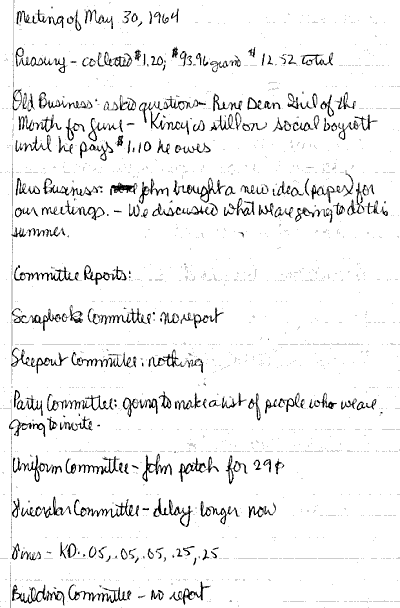 Meeting of May 30, 1964
Treasury - collected $1.20; $93.96 grand $12.52 total
Old Business: asked questions - Rene Dean Girl of the
Month for June - Kincy is still on social boycott
until he pays $1.10 he owes
New Business: John brought a new idea (paper) for
our meetings. - We discussed what we are going to do this
summer.
Committee Reports:
Scrapbook Committee: no report
Sleepout Committee: nothing
Party Committee: going to make a list of people who we are
going to invite.
Uniform Committee - John patch for 29¢
Committee - delay longer now
Fines - KD. .05, .05, .05, .25, .25
Building Committee - no report